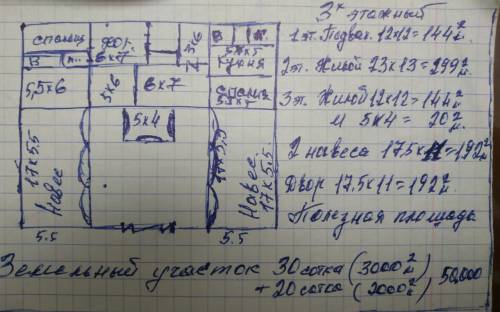 спальн
хол.
6x7
2x3x6
В
к.
5,5x5
кухня
В
к..
5,5x6
5x6
6x7
спальн
5.5x5
5x4
17x5.5
Навес
17x5,5
Навес
17x5.5
5.5
5.5
3х этажный
1 эт. Подвал. 12x12=144м²
2 эт. Жилой 23x13=299м²
3 эт. Жилой 12x12=144м²
и 5x4 = 20м²
2 навеса 17.5x11=192м²
Двор 17.5x11=192м²
Полезная площадь
Земельный участок 30 сотка (3000м²)
+20 сотка (2000м²) 50,000